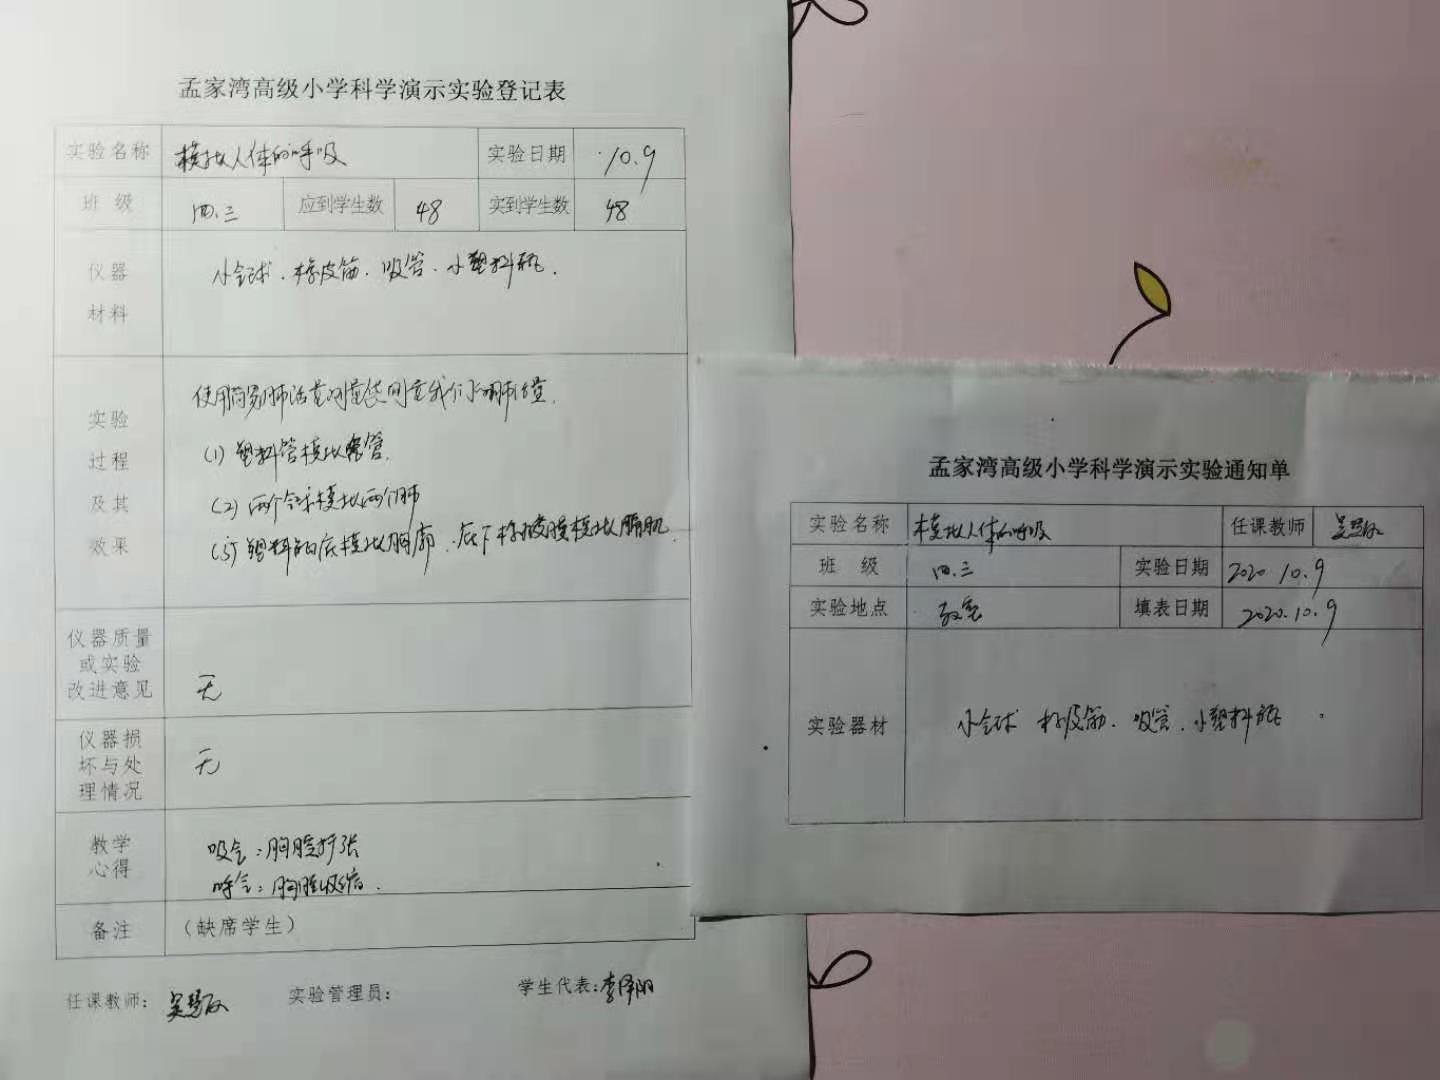 孟家湾高级小学科学演示实验登记表
实验名称 模拟人体的呼吸 实验日期 10.9
班 级 四.三 应到学生数 48 实到学生数 48
仪器
材料
小气球、橡皮筋、吸管、小塑料瓶.
实验
过程
及其
效果
使用简易肺活量测量袋测量我们的肺活量.
(1) 塑料管模拟气管.
(2) 两个气球模拟两个肺
(3) 塑料瓶的底模拟胸廓.底下橡皮膜模拟膈肌.
仪器质量
或实验
改进意见
无
仪器损
坏与处
理情况
无
教学
心得
吸气:胸腔扩张
呼气:胸腔收缩.
备注 (缺席学生)
任课教师: 吴慧敏 实验管理员: 学生代表:李泽阳
孟家湾高级小学科学演示实验通知单
实验名称 模拟人体的呼吸 任课教师 吴慧敏
班 级 四.三 实验日期 2020 10.9
实验地点 教室 填表日期 2020.10.9
实验器材 小气球 橡皮筋. 吸管. 小塑料瓶